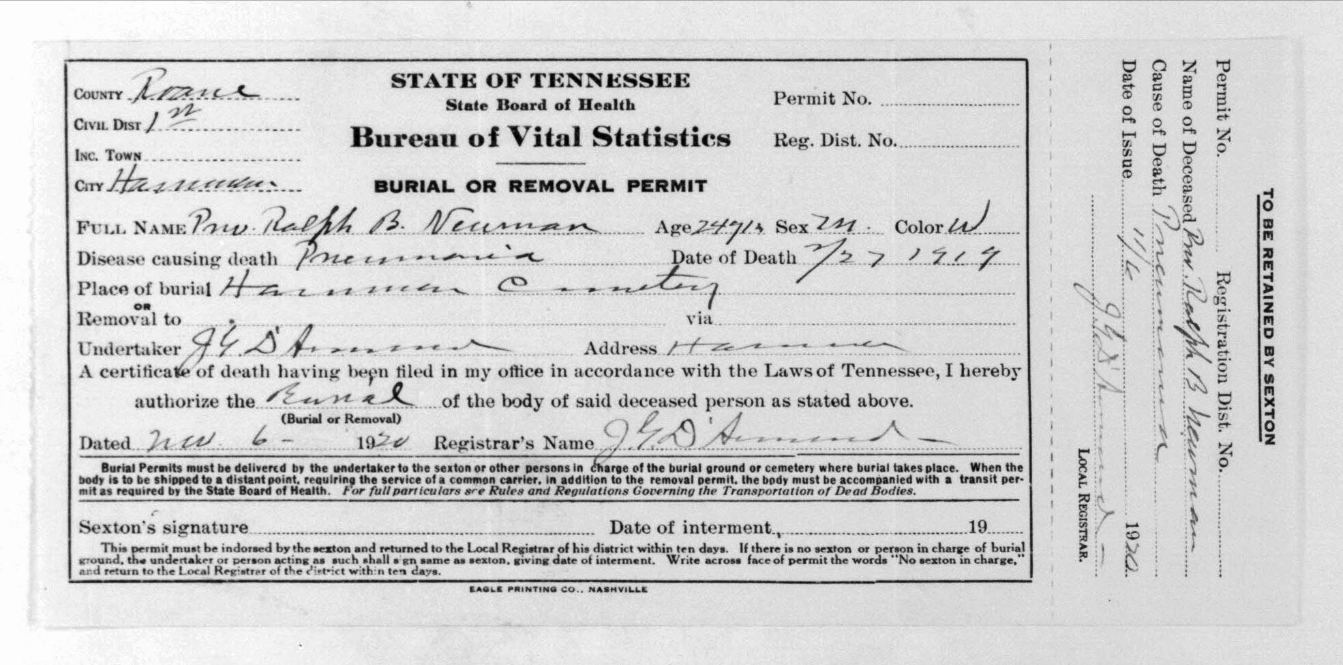 STATE OF TENNESSEE
State Board of Health
Bureau of Vital Statistics
BURIAL OR REMOVAL PERMIT
COUNTY Roane
CIVIL DIST 1st
INC. TOWN
CITY Harriman
Permit No.
Reg. Dist. No.
FULL NAME Priv. Ralph B. Newman Age Sex M. Color W
Disease causing death Pneumonia Date of Death 2/27 1919
Place of burial Harriman Cemetery
OR
Removal to via
Undertaker J G D'Armond Address Harriman
A certificate of death having been filed in my office in accordance with the Laws of Tennessee, I hereby
authorize the Burial of the body of said deceased person as stated above.
(Burial or Removal)
Dated Nov. 6- 1920 Registrar's Name J G D'Armond
Burial Permits must be delivered by the undertaker to the sexton or other persons in charge of the burial ground or cemetery where burial takes place. When the
body is to be shipped to a distant point, requiring the service of a common carrier, in addition to the removal permit, the body must be accompanied with a transit per-
mit as required by the State Board of Health. For full particulars see Rules and Regulations Governing the Transportation of Dead Bodies.
Sexton's signature Date of interment, 19
This permit must be indorsed by the sexton and returned to the Local Registrar of his district within ten days. If there is no sexton or person in charge of burial
ground, the undertaker or person acting as such shall sign same as sexton, giving date of interment. Write across face of permit the words "No sexton in charge,"
and return to the Local Registrar of the district within ten days.
EAGLE PRINTING CO., NASHVILLE
TO BE RETAINED BY SEXTON
Permit No. Registration Dist. No.
Name of Deceased Priv. Ralph B Newman
Cause of Death Pneumonia
Date of Issue 11/6 1920
J G D'Armond
LOCAL REGISTRAR.